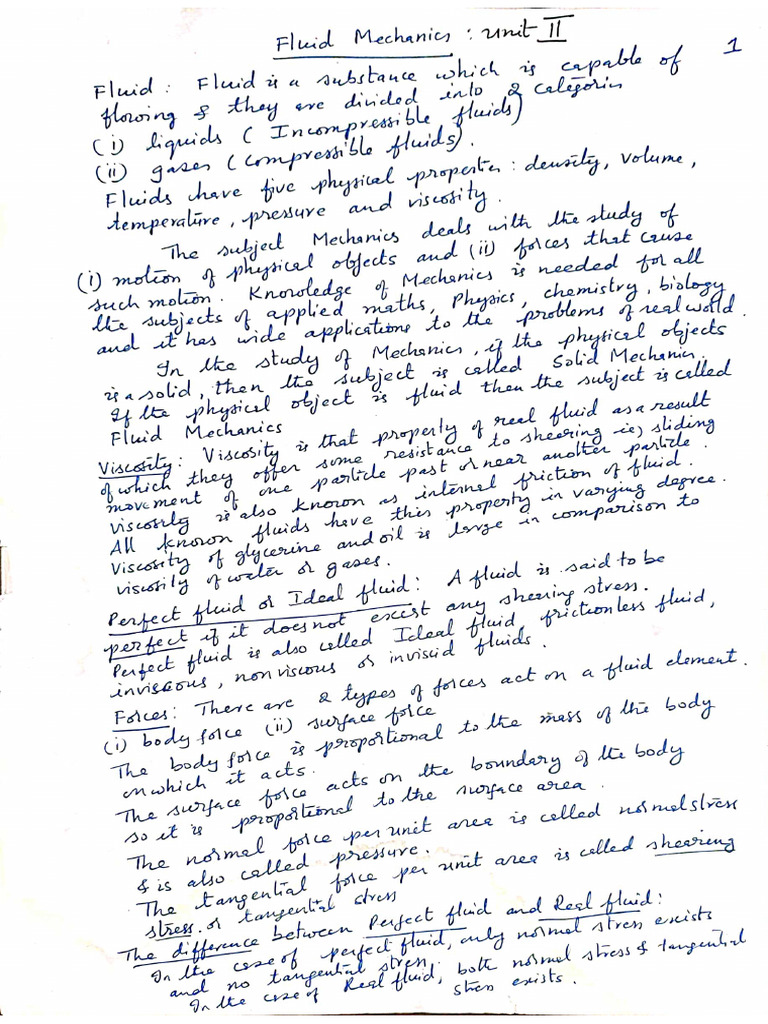 Fluid Mechanics : Unit II
1
Fluid : Fluid is a substance which is capable of
flowing & they are divided into 2 categories
(i) liquids ( Incompressible fluids)
(ii) gases (compressible fluids).
Fluids have five physical properties : density, volume,
temperature, pressure and viscosity.
The subject Mechanics deals with the study of
(i) motion of physical objects and (ii) forces that cause
such motion. Knowledge of Mechanics is needed for all
the subjects of applied maths, Physics, chemistry, biology
and it has wide applications to the problems of real world.
In the study of Mechanics, if the physical objects
is a solid, then the subject is called Solid Mechanics.
If the physical object is fluid then the subject is called
Fluid Mechanics
Viscosity : Viscosity is that property of real fluid as a result
of which they offer some resistance to shearing ie) sliding
movement of one particle past or near another particle.
viscosity is also known as internal friction of fluid.
All known fluids have this property in varying degree.
Viscosity of glycerine and oil is large in comparison to
viscosity of water or gases.
Perfect fluid or Ideal fluid : A fluid is said to be
perfect if it does not excist any shearing stress.
Perfect fluid is also called Ideal fluid frictionless fluid,
inviscous, nonviscous or inviscid fluids.
Forces : There are 2 types of forces act on a fluid element.
(i) body force (ii) surface force
The body force is proportional to the mass of the body
on which it acts.
The surface force acts on the boundary of the body
so it is proportional to the surface area.
The normal force per unit area is called normal stress
& is also called pressure.
The tangential force per unit area is called shearing
stress. or tangential stress
The difference between Perfect fluid and Real fluid :
In the case of perfect fluid, only normal stress excists
and no tangential stress.
In the case of Real fluid, both normal stress & tangential
stress exists.